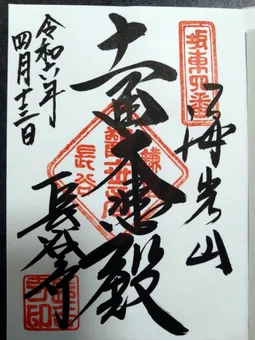 坂東四番
海光山
十一面大悲殿
長谷
長谷寺
令和六年
四月十三日